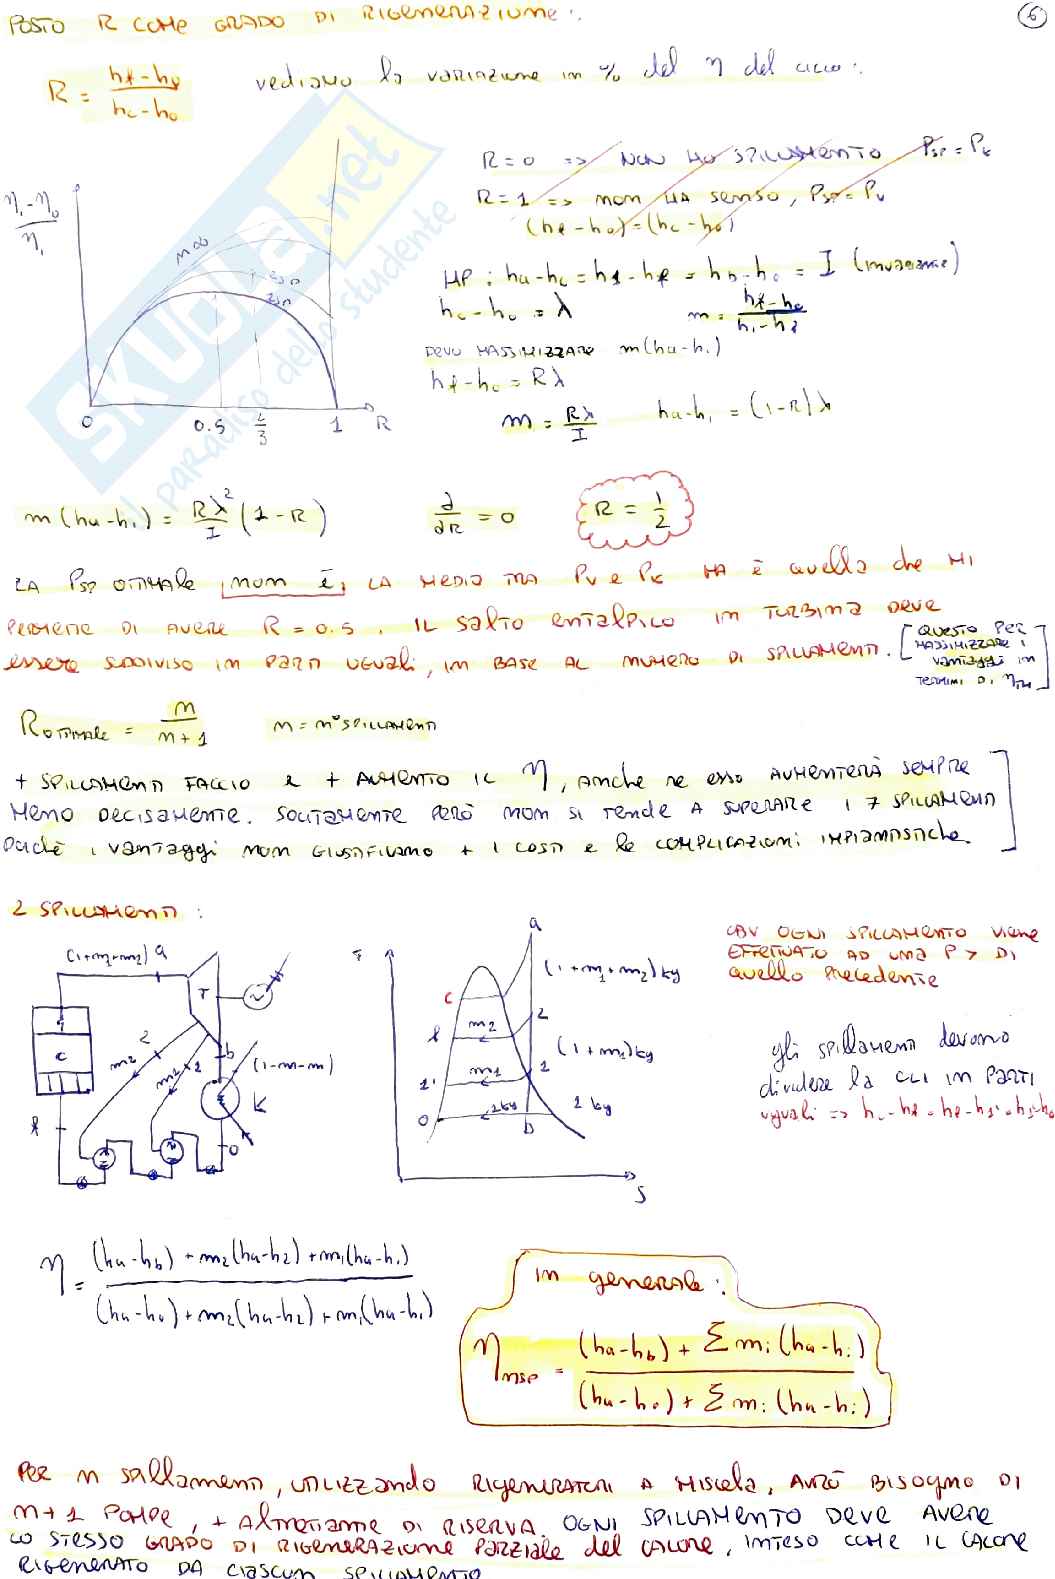 POSTO R COME GRADO DI RIGENERAZIONE:
6
R = (hf-ho)/(hc-ho)
vediamo la variazione in % del η del ciclo:
(η1-η0)/η1
m ∞
2 sp
0 0.5 2/3 1 R
R=0 => NON HO SPILLAMENTO PSP=PK
R=1 => non HA senso, PSP=PV
(hf-ho)=(hc-ho)
HP: ha-hc=h1-hf=hb-ho=I (invariante)
hc-ho=λ
m=(hf-ho)/(h1-hf)
DEVO MASSIMIZZARE m(ha-h1)
hf-ho=Rλ
m=Rλ/I ha-h1=(1-R)λ
m(ha-h1)=Rλ²/I (1-R)
∂/∂R=0
R=1/2
LA PSP OTTIMALE non è LA MEDIA TRA PV e PK MA è quella che MI
PERMETTE DI AVERE R=0.5. IL SALTO ENTALPICO IN TURBINA DEVE
essere suddiviso in PARTI UGUALI, IN BASE AL NUMERO DI SPILLAMENTI.
[QUESTO PER
MASSIMIZZARE I
VANTAGGI IN
TERMINI DI ηTH]
ROTTIMALE = n/(n+1) n=n° SPILLAMENTI
+ SPILLAMENTI FACCIO e + AUMENTO IL η, anche se esso AUMENTERÀ SEMPRE
MENO DECISAMENTE. SOLITAMENTE PERÒ NON SI TENDE A SUPERARE I 7 SPILLAMENTI
perchè i vantaggi non GIUSTIFICANO + I COSTI e le COMPLICAZIONI IMPIANTISTICHE.
2 SPILLAMENTI:
(1+m1+m2) a
T
2
m2
1
b
(1-m-m)
K
q
c
f
0
a
c
(1+m1+m2)kg
f m2 2
(1+m1)kg
1' m1 1
0 1kg b 1 kg
S
OGNI SPILLAMENTO viene
EFFETTUATO AD UNA P > DI
quello PRECEDENTE
gli spillamenti devono
dividere la CLI IN PARTI
uguali => hc-hf=hf-h1'=h1'-ho
η = ((ha-hb)+m2(ha-h2)+m1(ha-h1))/((ha-ho)+m2(ha-h2)+m1(ha-h1))
in generale:
ηnsp = ((ha-hb)+Σmi(ha-hi))/((ha-ho)+Σmi(ha-hi))
PER n spillamenti, UTILIZZANDO RIGENERATORI A MISCELA, AVRÒ BISOGNO DI
n+1 POMPE, + ALTRETTANTE DI RISERVA. OGNI SPILLAMENTO DEVE AVERE
LO STESSO GRADO DI RIGENERAZIONE PARZIALE del CALORE, INTESO COME IL CALORE
RIGENERATO DA CIASCUN SPILLAMENTO
SKUOLA.net
il paradiso dello studente